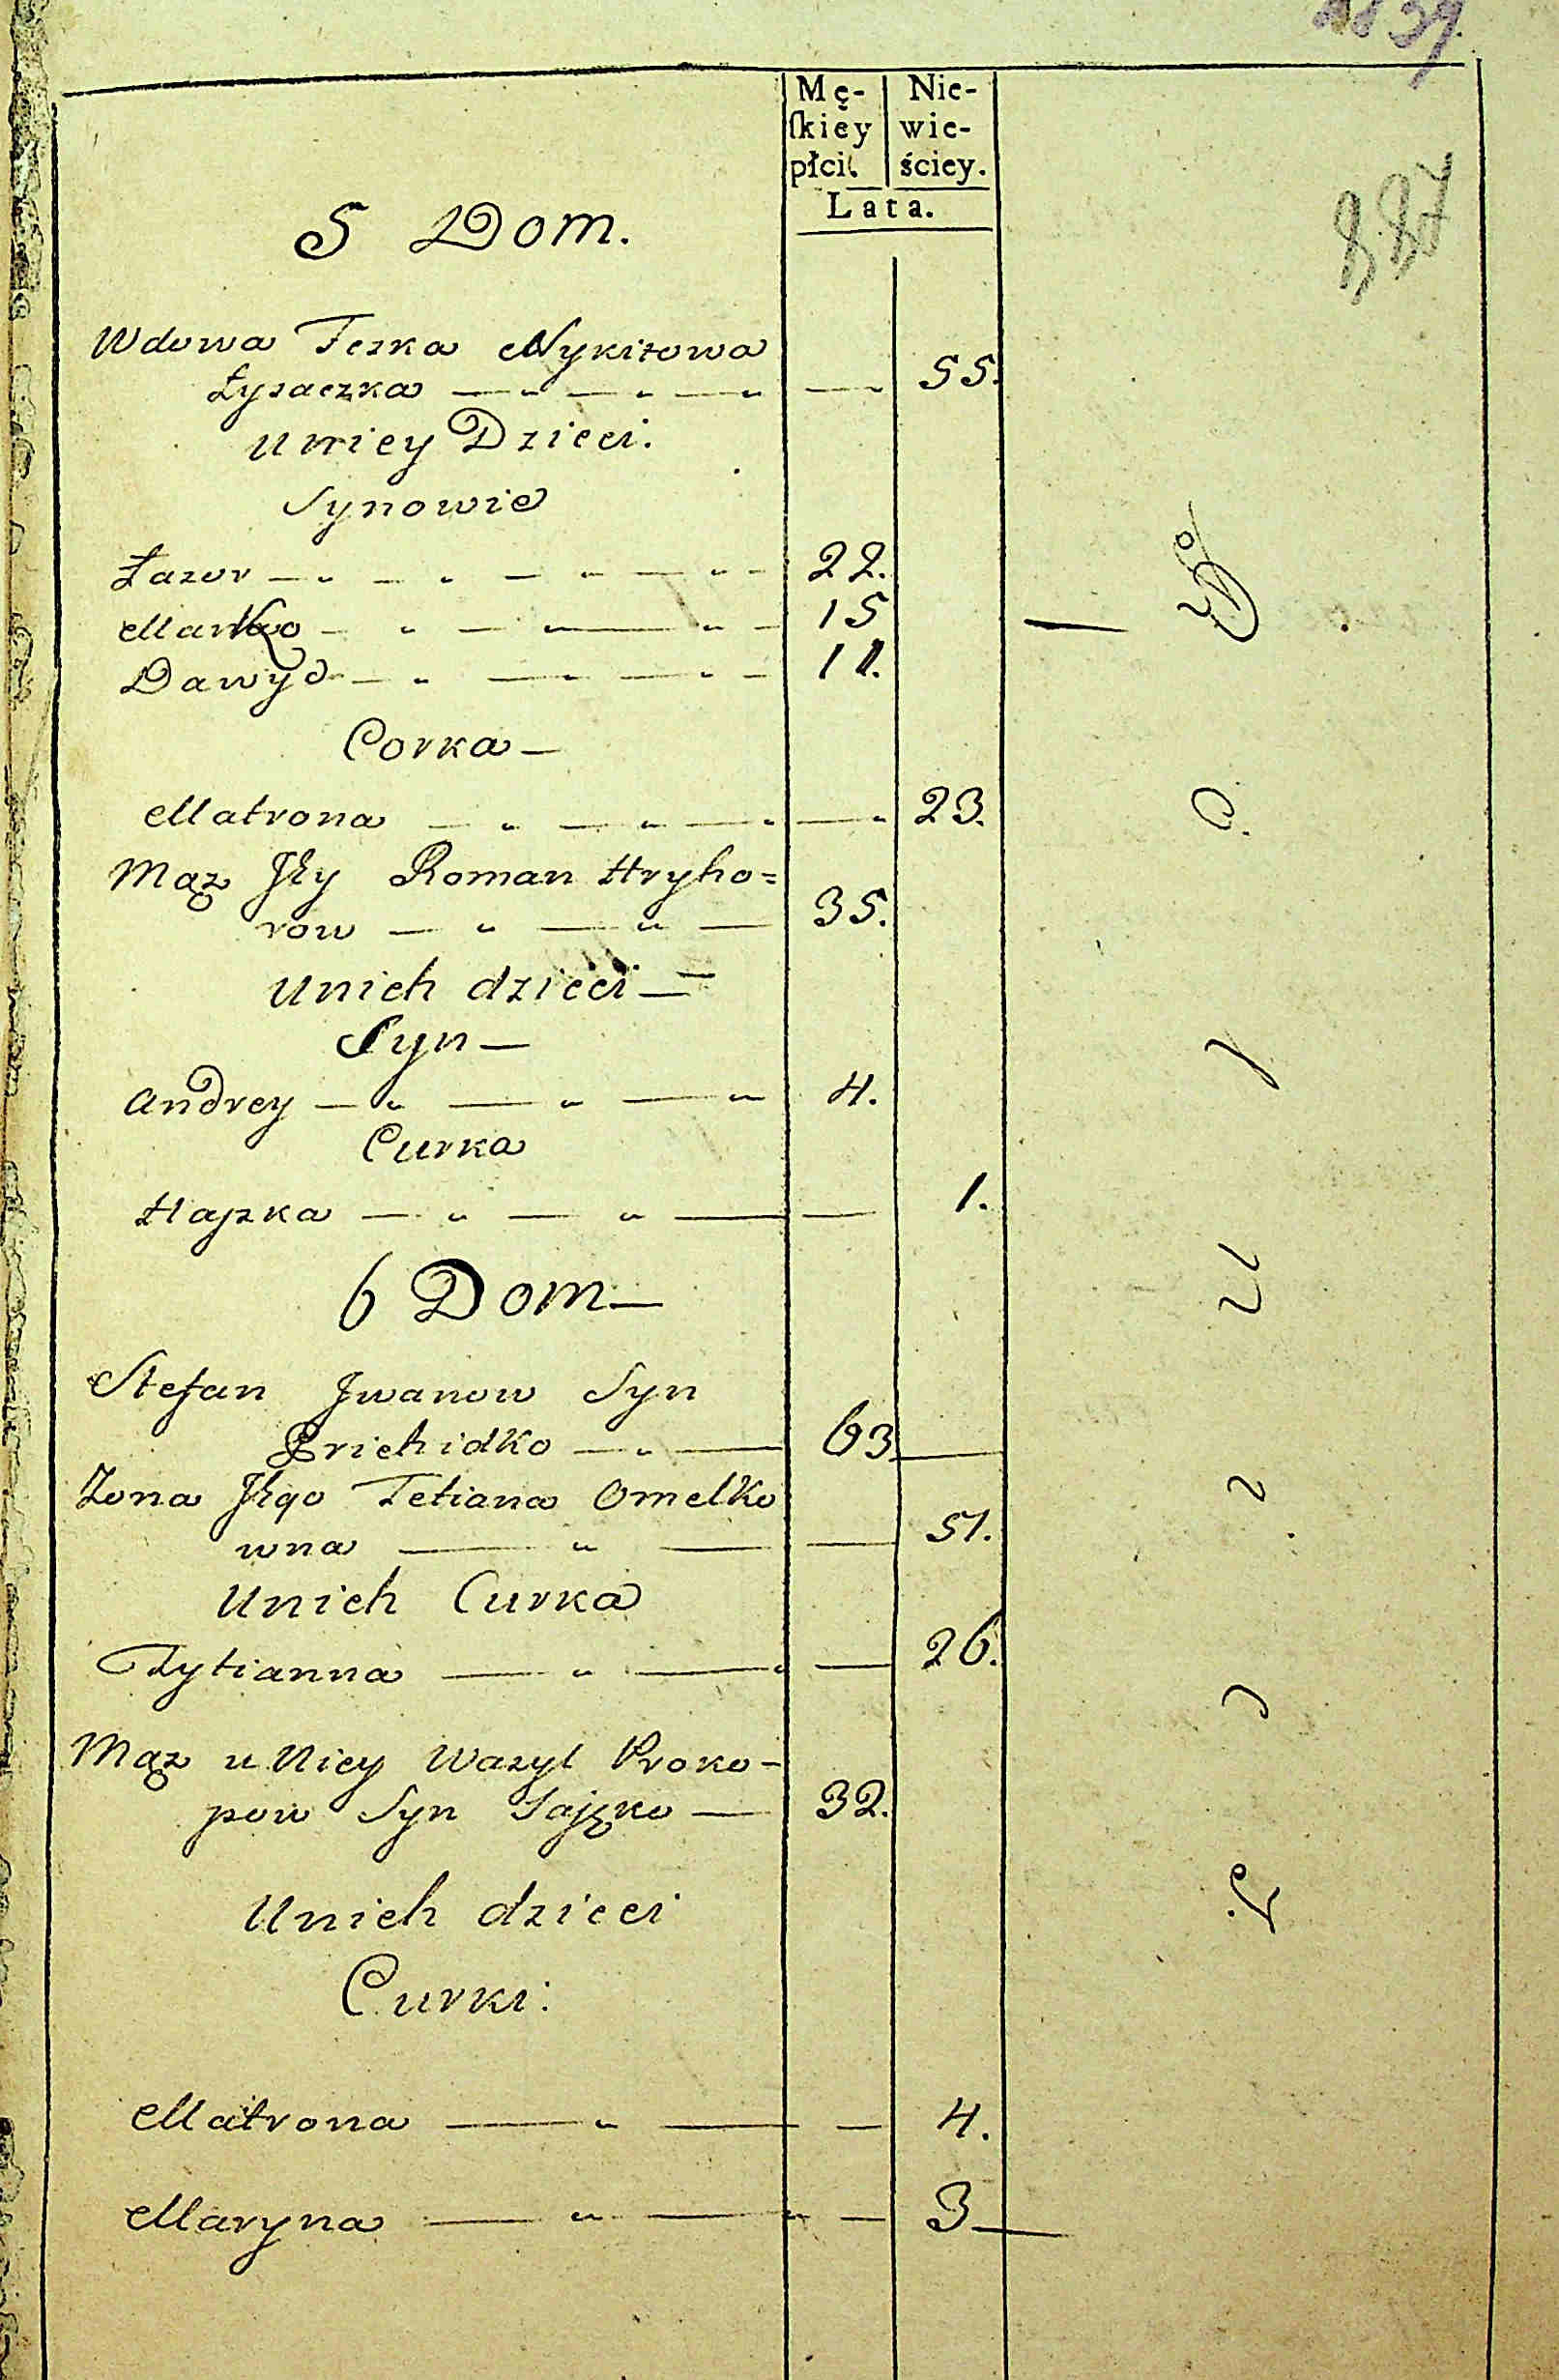 1839.
Mę- Nie-
ſkiey wie-
płci. ściey.
Lata.
887
5 Dom.
Wdowa Feska Nykitowa
Łysaczka — „ — „ — „ — 55.
Uniey Dzieci.
Synowie
Łazor — „ — „ — „ — „ — 22.
Marko — „ — „ — „ — 15
Dawyd — „ — „ — „ — 11.
Corka —
Matrona — „ — „ — „ — „ 23.
Mąz Jey Roman Hryho=
row — „ — „ — 35.
Unich dzieci —
Syn —
Andrey — „ — „ — „ 4.
Curka
Hapka — „ — „ — — 1.
6 Dom —
Stefan Jwanow Syn
Prichidko — „ — 63 —
Zona Jego Tetiana Omelko
wna — „ — — 51.
Unich Curka
Tytianna — „ — „ — 26.
Mąz u Niey Wasyl Proko-
pow Syn — 32.
Unich dzieci
Curki:
Matrona — „ — — 4.
Maryna — „ — „ — 3 —